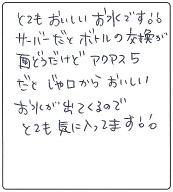 とても おいしい お水です!!
サーバーだと ボトルの 交換が
面どうだけど アクアス5
だと じゃ口から おいしい
お水が 出てくるので
とても 気に入ってます!!